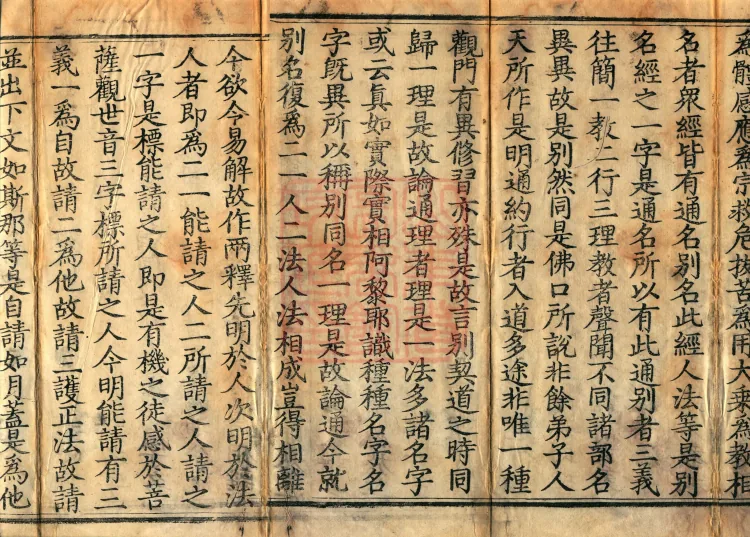 爲體靈應爲宗救危拔苦爲用大乘爲教相
名者衆經皆有通名別名此經人法等是別
名經之一字是通名所以有此通別者三義
往簡一教二行三理教者聲聞不同諸部名
異異故是別然同是佛口所說非餘弟子人
天所作是明通約行者入道多途非唯一種
觀門有異修習亦殊是故言別契道之時同
歸一理是故論通理者理是一法多諸名字
或云眞如實際實相阿黎耶識種種名字名
字旣異所以稱別同名一理是故論通今就
別名復爲二一人二法人法相成豈得相離
今欲令易解故作兩釋先明於人次明於法
人者即爲二一能請之人二所請之人請之
一字是標能請之人即是有機之徒感於菩
薩觀世音三字標所請之人今明能請有三
義一爲自故請二爲他故請三護正法故請
並出下文如斯那等是自請如月蓋是爲他